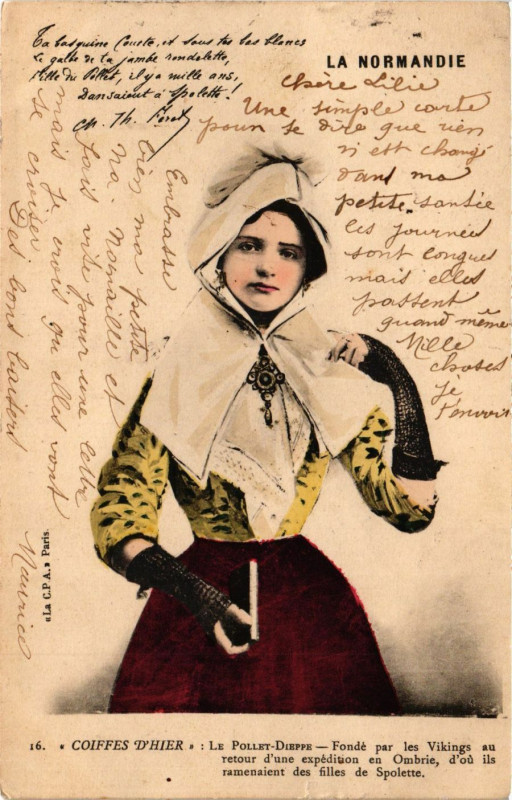 Ta basquine Courte, et sous tes bas blancs
Le galbe de la jambe rondelette,
Fille du Pollet, il y a mille ans,
Dansaient à Spolette !
Ch. Th. Féret
LA NORMANDIE
Chère Lilie
Une simple carte
pour te dire que rien
n'est changé
dans ma
petite santée
les journées
sont longues
mais elles
passent
quand même
Mille
choses
Je
t'envoi
Embrasse
bien ma petite
et
fais vite pour une lettre
mais je crois qu'elles vont
se croiser
Des bons baisers
Maurice
«La C.P.A.» Paris
16. « COIFFES D'HIER » : LE POLLET-DIEPPE — Fondé par les Vikings au
retour d'une expédition en Ombrie, d'où ils
ramenaient des filles de Spolette.